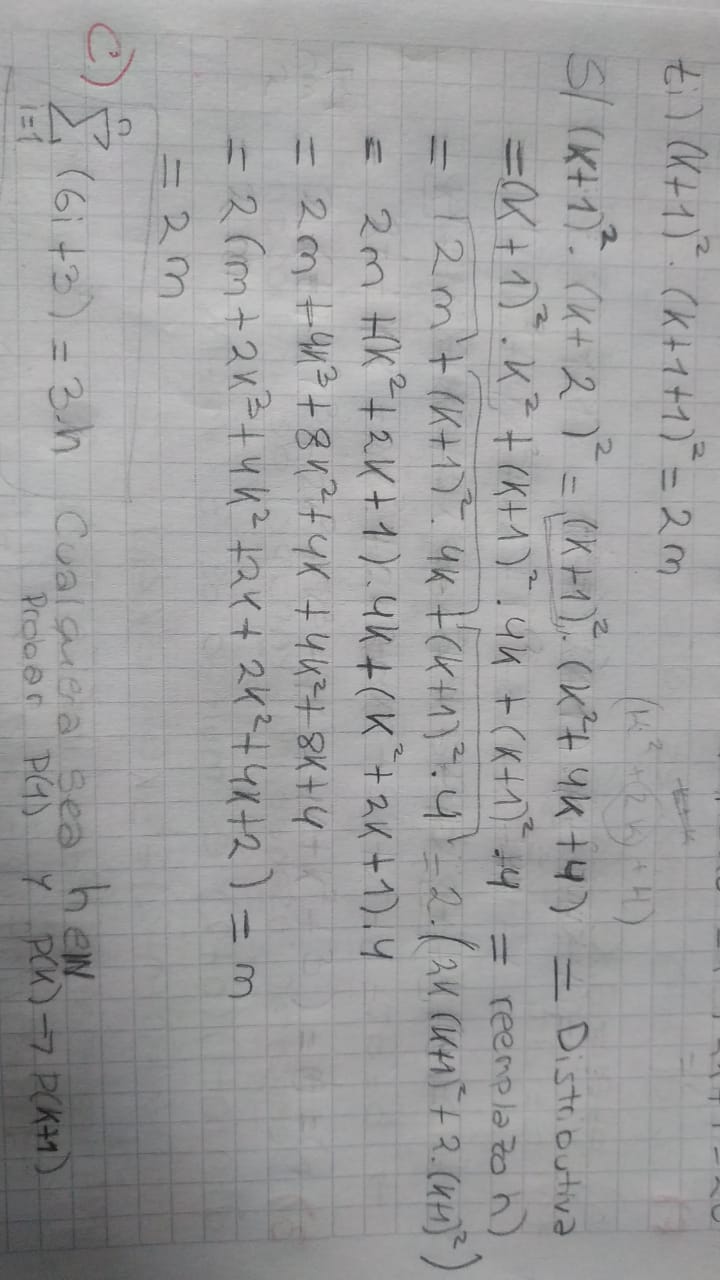 ti) (k+1)². (k+1+1)² = 2m
(k²+2k)+1)
S/ (k+1)². (k+2)² = (k+1)². (k²+4k+4) = Distributiva
= (k+1)². k² + (k+1)². 4k + (k+1)². 4 = reemplazo h)
= 2m + (k+1)². 4k + (k+1)². 4 = 2.(2k(k+1)² + 2.(k+1)²)
= 2m + (k²+2k+1). 4k + (k²+2k+1). 4
= 2m + 4k³ + 8k² + 4k + 4k² + 8k + 4
= 2(m + 2k³ + 4k² + 2k + 2k² + 4k + 2) = m
= 2m
C) n∑i=1 (6i+3) = 3.n Cualquiera sea n∈N
Probar P(1) y P(k) → P(k+1)